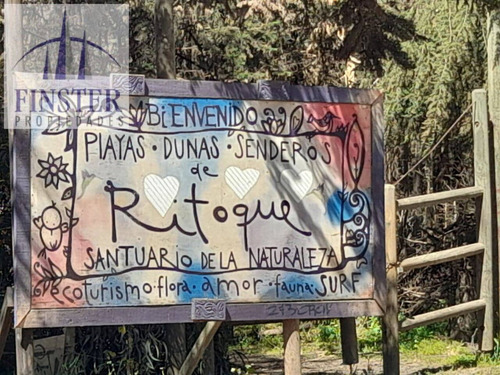 FINSTER
PROPIEDADES
BiENVENIDO
PLAYAS · DUNAS · SENDEROS
de
Ritoque
SANTUARIO DE LA NATURALEZA
Ecoturismo · flora · amor · fauna · SURF